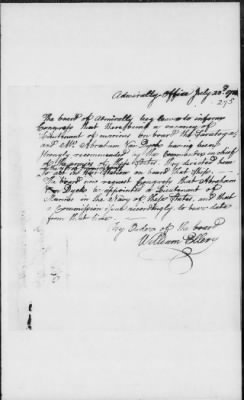 Admiralty Office July 23d 178
275
The board of Admiralty beg leave to inform
Congress that there being a vacancy of
Lieutenant of marines on board the Saratoga
and Mr. Abraham Van Dyck having been
strongly recommended by the Commander in chief
of the armies of these States, they directed him
to act in that Station on board that Ship
The board now request Congress that Abraham
Van Dycke be appointed a Lieutenant of
Marines in the Navy of these States, and that
a Commission issue accordingly to bear date
from that time
By Order of the board
William Ellery